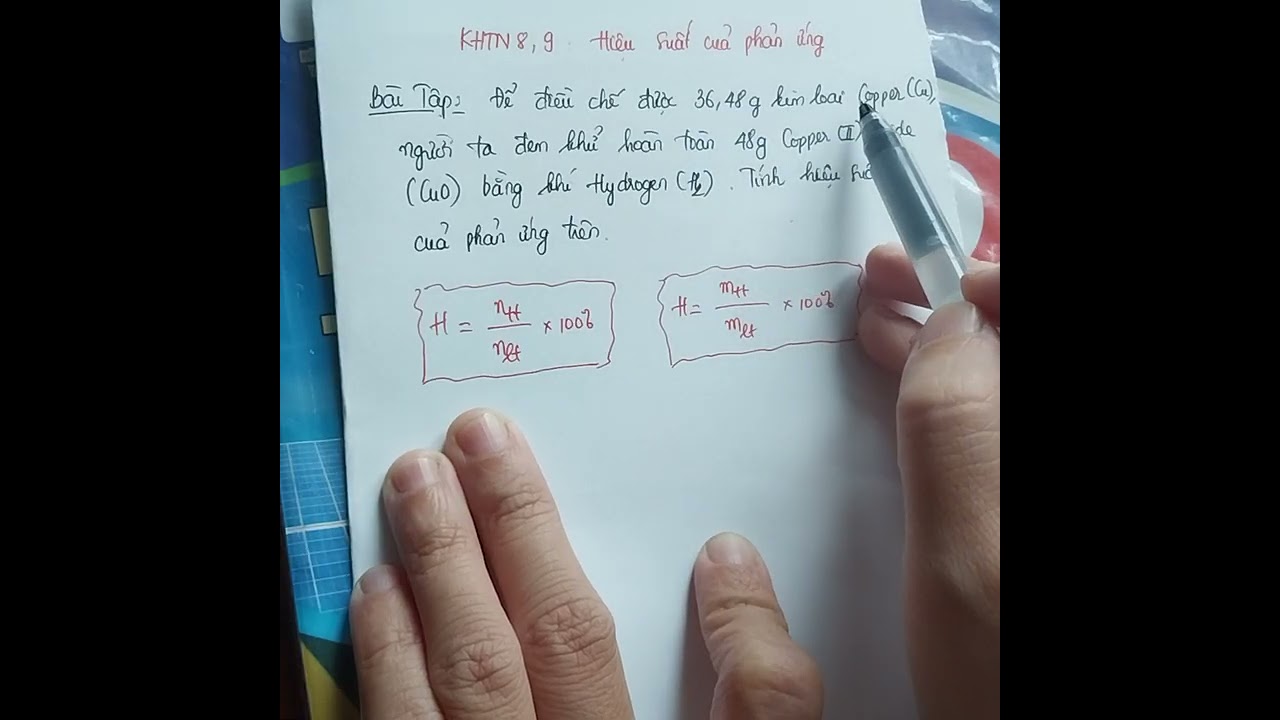 KHTN 8, 9. Hiệu suất của phản ứng
Bài Tập: Để điều chế được 36,48g kim loại Copper (Cu),
người ta đem khử hoàn toàn 48g Copper (II)
(CuO) bằng khí Hydrogen (H2). Tính hiệu
của phản ứng trên.
H = ntt / nlt × 100%
H = mtt / mlt × 100%